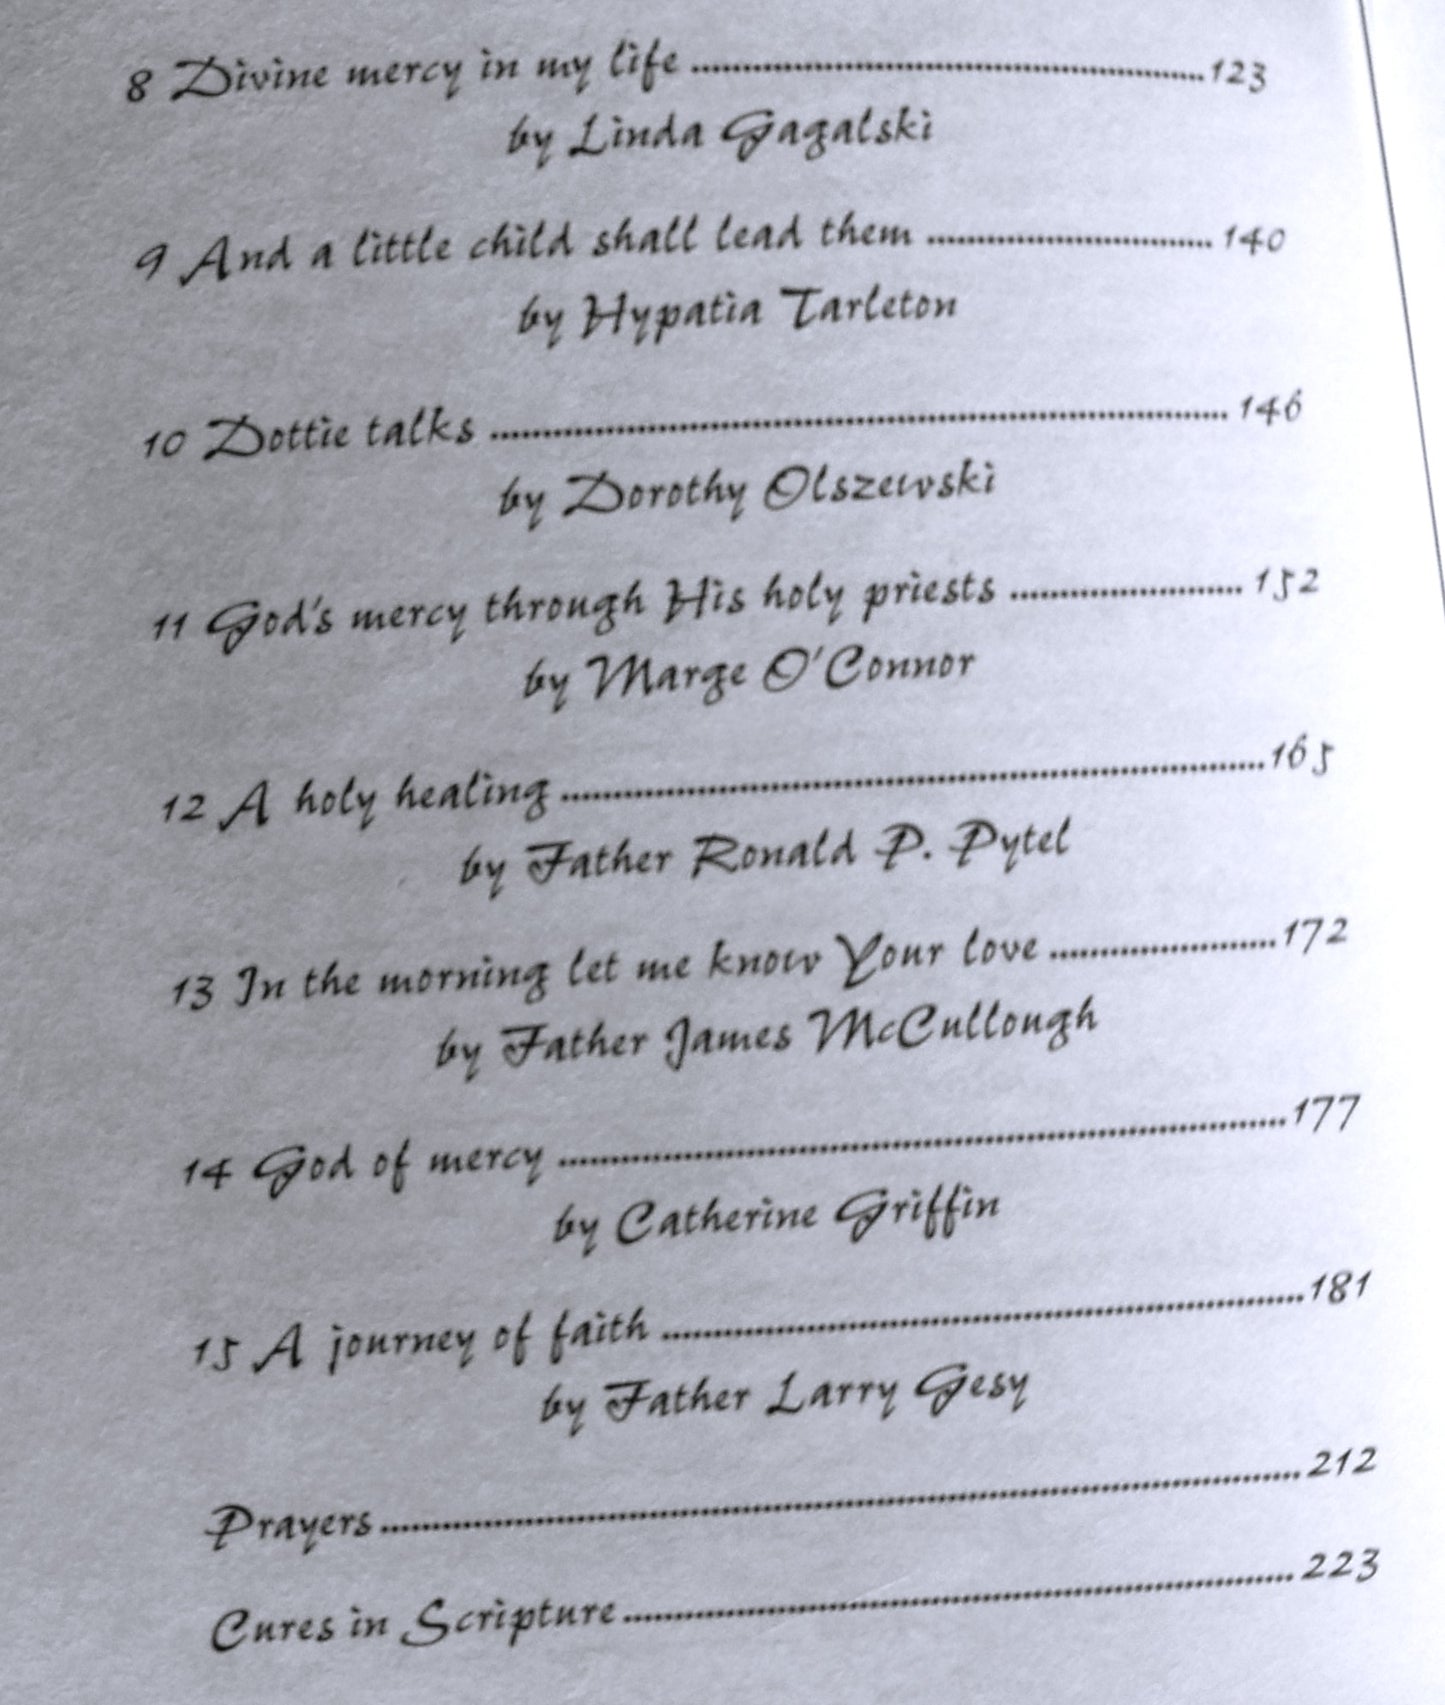 8 Divine mercy in my life ........................................................123
by Linda Gagalski
9 And a little child shall lead them ............................... 140
by Hypatia Tarleton
10 Dottie talks ................................................................................ 146
by Dorothy Olszewski
11 God's mercy through His holy priests ......................... 152
by Marge O'Connor
12 A holy healing .............................................................................165
by Father Ronald P. Pytel
13 In the morning let me know Your love .........................172
by Father James McCullough
14 God of mercy ................................................................................177
by Catherine Griffin
15 A journey of faith ......................................................................181
by Father Larry Gesy
Prayers.....................................................................................................212
Cures in Scripture..........................................................................223